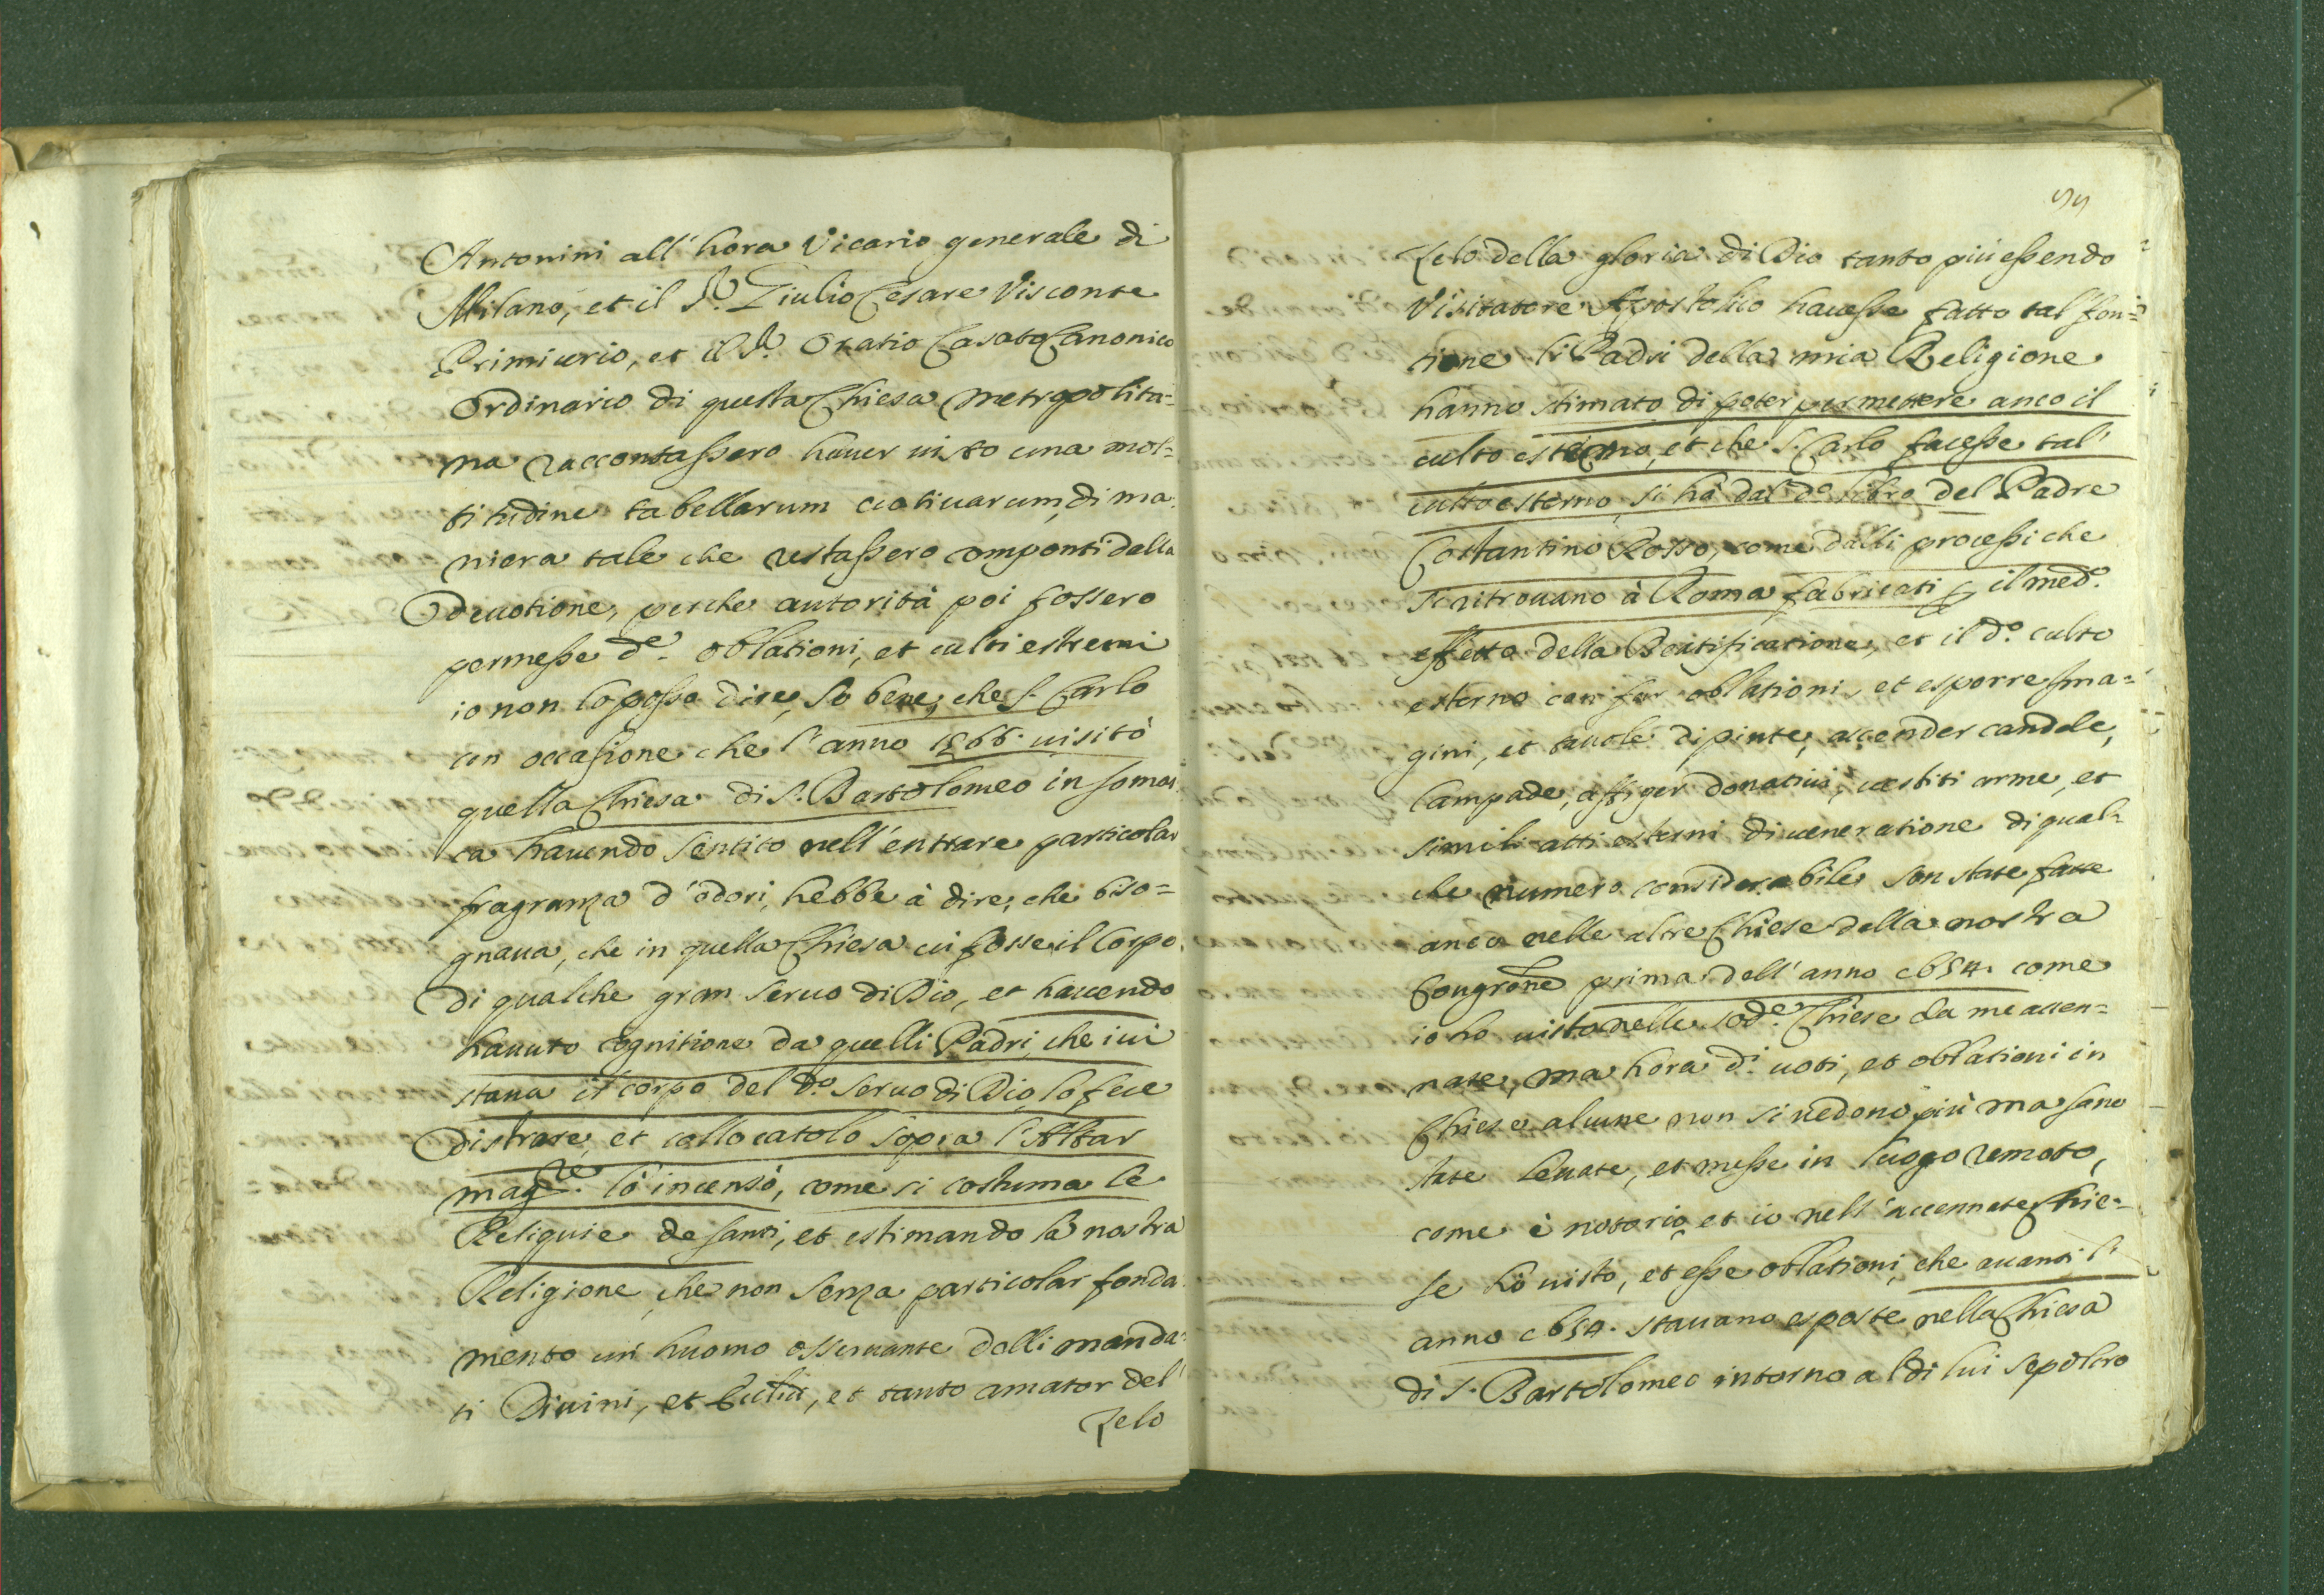 Antonini all'hora Vicario generale di
Milano, et il Sr. Giulio Cesare Visconte
Primicerio, et il Sr. Oratio Casato Canonico
Ordinario di questa Chiesa Metropolita=
na raccontassero haver visto una mol=
titudine tabellarum votivarum, di ma
niera tale che restassero componti dalla
devotione, perche autorità poi fossero
permesse de. oblationi, et culti estremi
io non lo posso dire, so bene, che S. Carlo
con occasione che l'anno 1566. visitò
quella Chiesa di S. Bartolomeo in Somas
ca havendo sentito nell'entrare particolar
fragranza d'odori, hebbe à dire, che biso=
gnava, che in quella Chiesa vi fosse il Corpo
di qualche gran Servo di Dio, et havendo
havuto cognitione da quelli Padri, che ivi
stava il corpo del do. Servo di Dio lo fece
distrare, et collocatolo sopra l'Altar
magre. lo incensò, come si costuma le
Reliquie de santi, et estimando la nostra
Religione, che non senza particolar fonda
mento un huomo osservante delli manda=
ti Divini, et, et tanto amator del
Zelo
55
Zelo della gloria di Dio tanto più essendo
Visitatore Apostolico havesse fatto tal fon=
tione li Padri della mia Religione
hanno stimato di poter permettere anco il
culto esterno, et che S. Carlo facesse tal
culto esterno, si hà dal do. libro del Padre
Costantino Rosso, come dalli processi che
si ritrovano à Roma fabricati p il medo.
effetto della Beatificatione, et il do. culto
esterno con far oblationi, et esporre Ima=
gini, et tavole dipinte, accender candele,
lampade, affiger donativi, vestiti arme, et
simili atti esterni di veneratione di qual=
che numero considerabile son state fatte
anco nelle altre Chiese della nostra
Congrone prima dell'anno 1654. come
io ho visto nelle sode. Chiese da me accen=
nate, ma hora di. voti, et oblationi in
Chiese alcune non si vedono più ma sano
state levate, et messe in luogo remoto,
come è notorio, et io nell'accennate Chie=
se hò visto, et esse oblationi, che avanti l'
anno 1654. stavano esposte nella Chiesa
di S. Bartolomeo intorno al di lui sepolcro